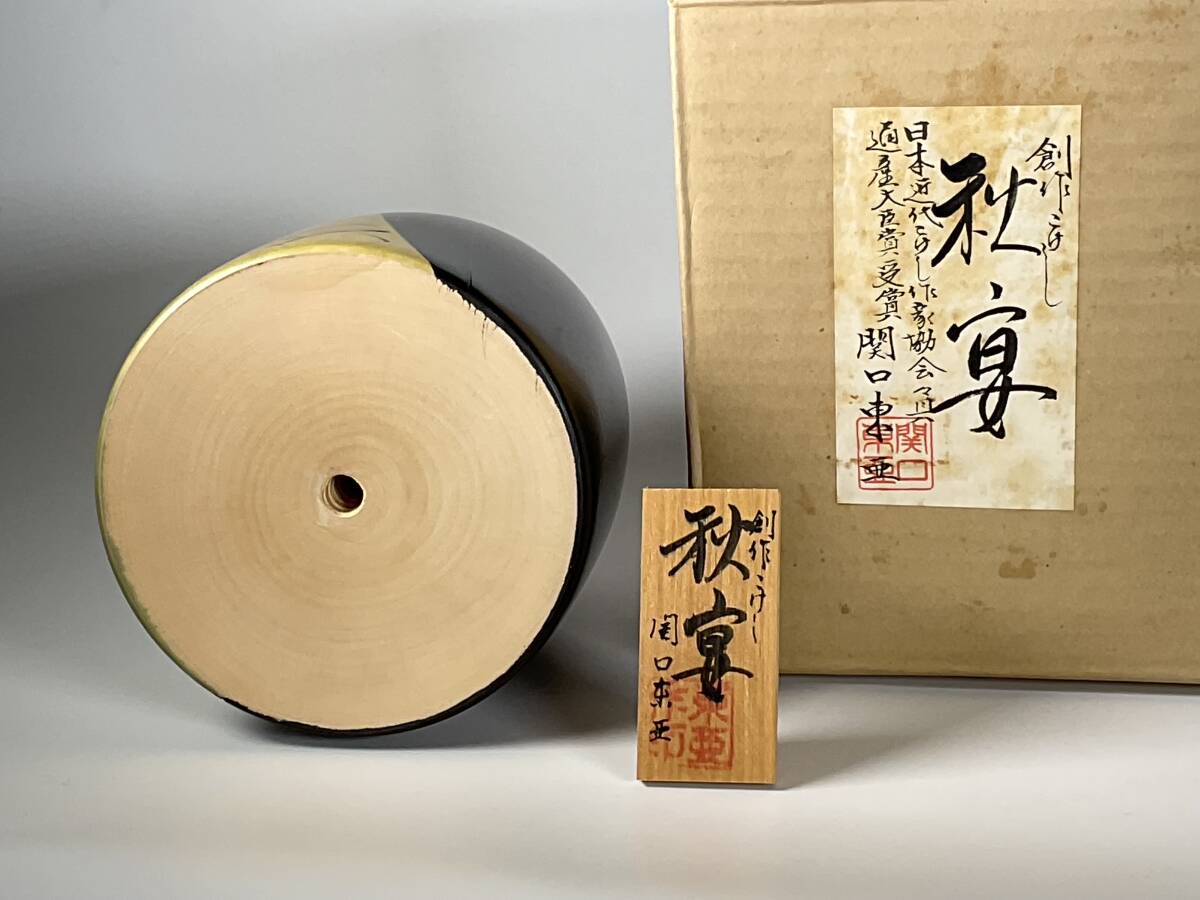 創作こけし
秋宴
日本近代こけし作家協会々員
通産大臣賞受賞 関口東亜
関口
東亜
創作こけし
秋宴
関口東亜
東亜